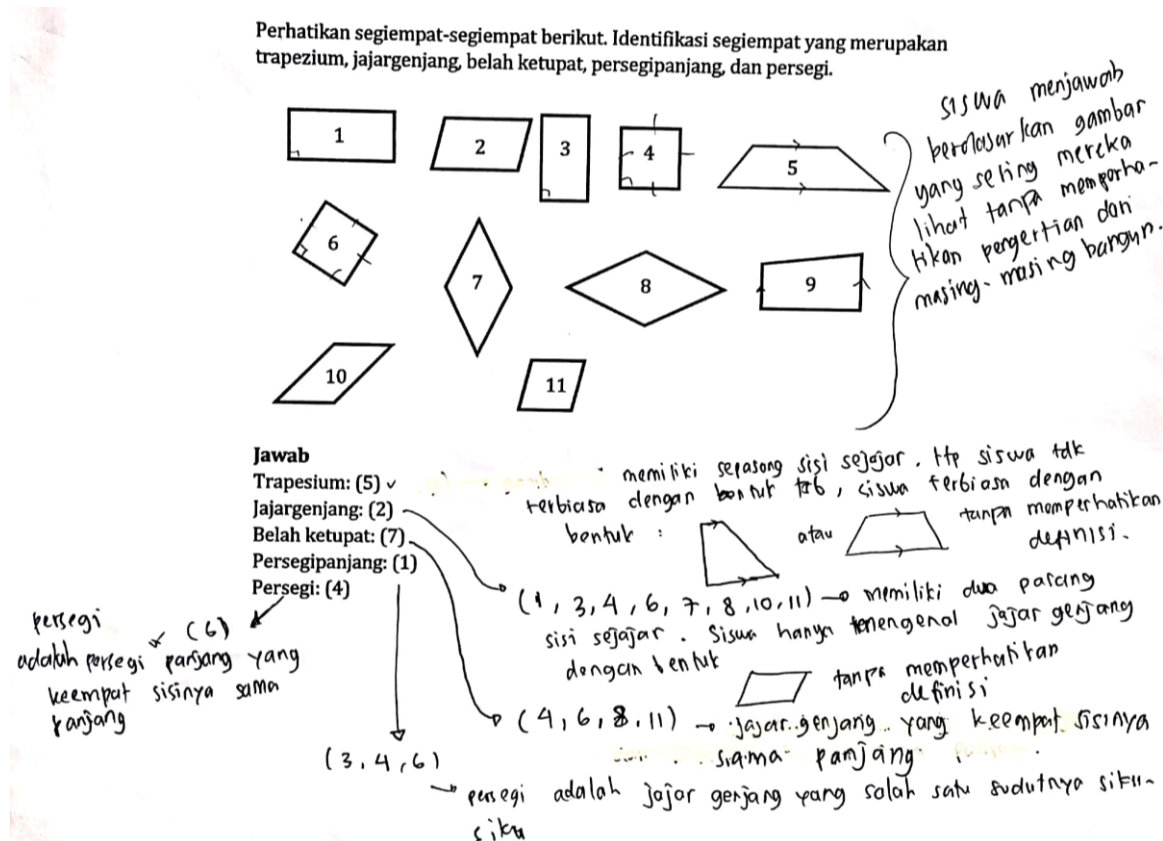 Perhatikan segiempat-segiempat berikut. Identifikasi segiempat yang merupakan
trapezium, jajargenjang, belah ketupat, persegipanjang, dan persegi.
siswa menjawab
berdasarkan gambar
yang sering mereka
lihat tanpa memperha-
tikan pengertian dari
masing-masing bangun.
1
2
3
4
5
6
7
8
9
10
11
Jawab
Trapesium: (5) ✓
Jajargenjang: (2)
Belah ketupat: (7)
Persegipanjang: (1)
Persegi: (4)
memiliki sepasang sisi sejajar. ttp siswa tdk
terbiasa dengan bentuk tsb, siswa terbiasa dengan
bentuk : atau tanpa memperhatikan
definisi.
(1, 3, 4, 6, 7, 8, 10, 11) → memiliki dua pasang
sisi sejajar. Siswa hanya mengenal jajar genjang
dengan bentuk tanpa memperhatikan
definisi
(4, 6, 8, 11) → jajar genjang yang keempat sisinya
sama panjang
(3, 4, 6)
→ persegi adalah jajar genjang yang salah satu sudutnya siku-
siku
(6)
persegi
adalah persegi panjang yang
keempat sisinya sama
panjang